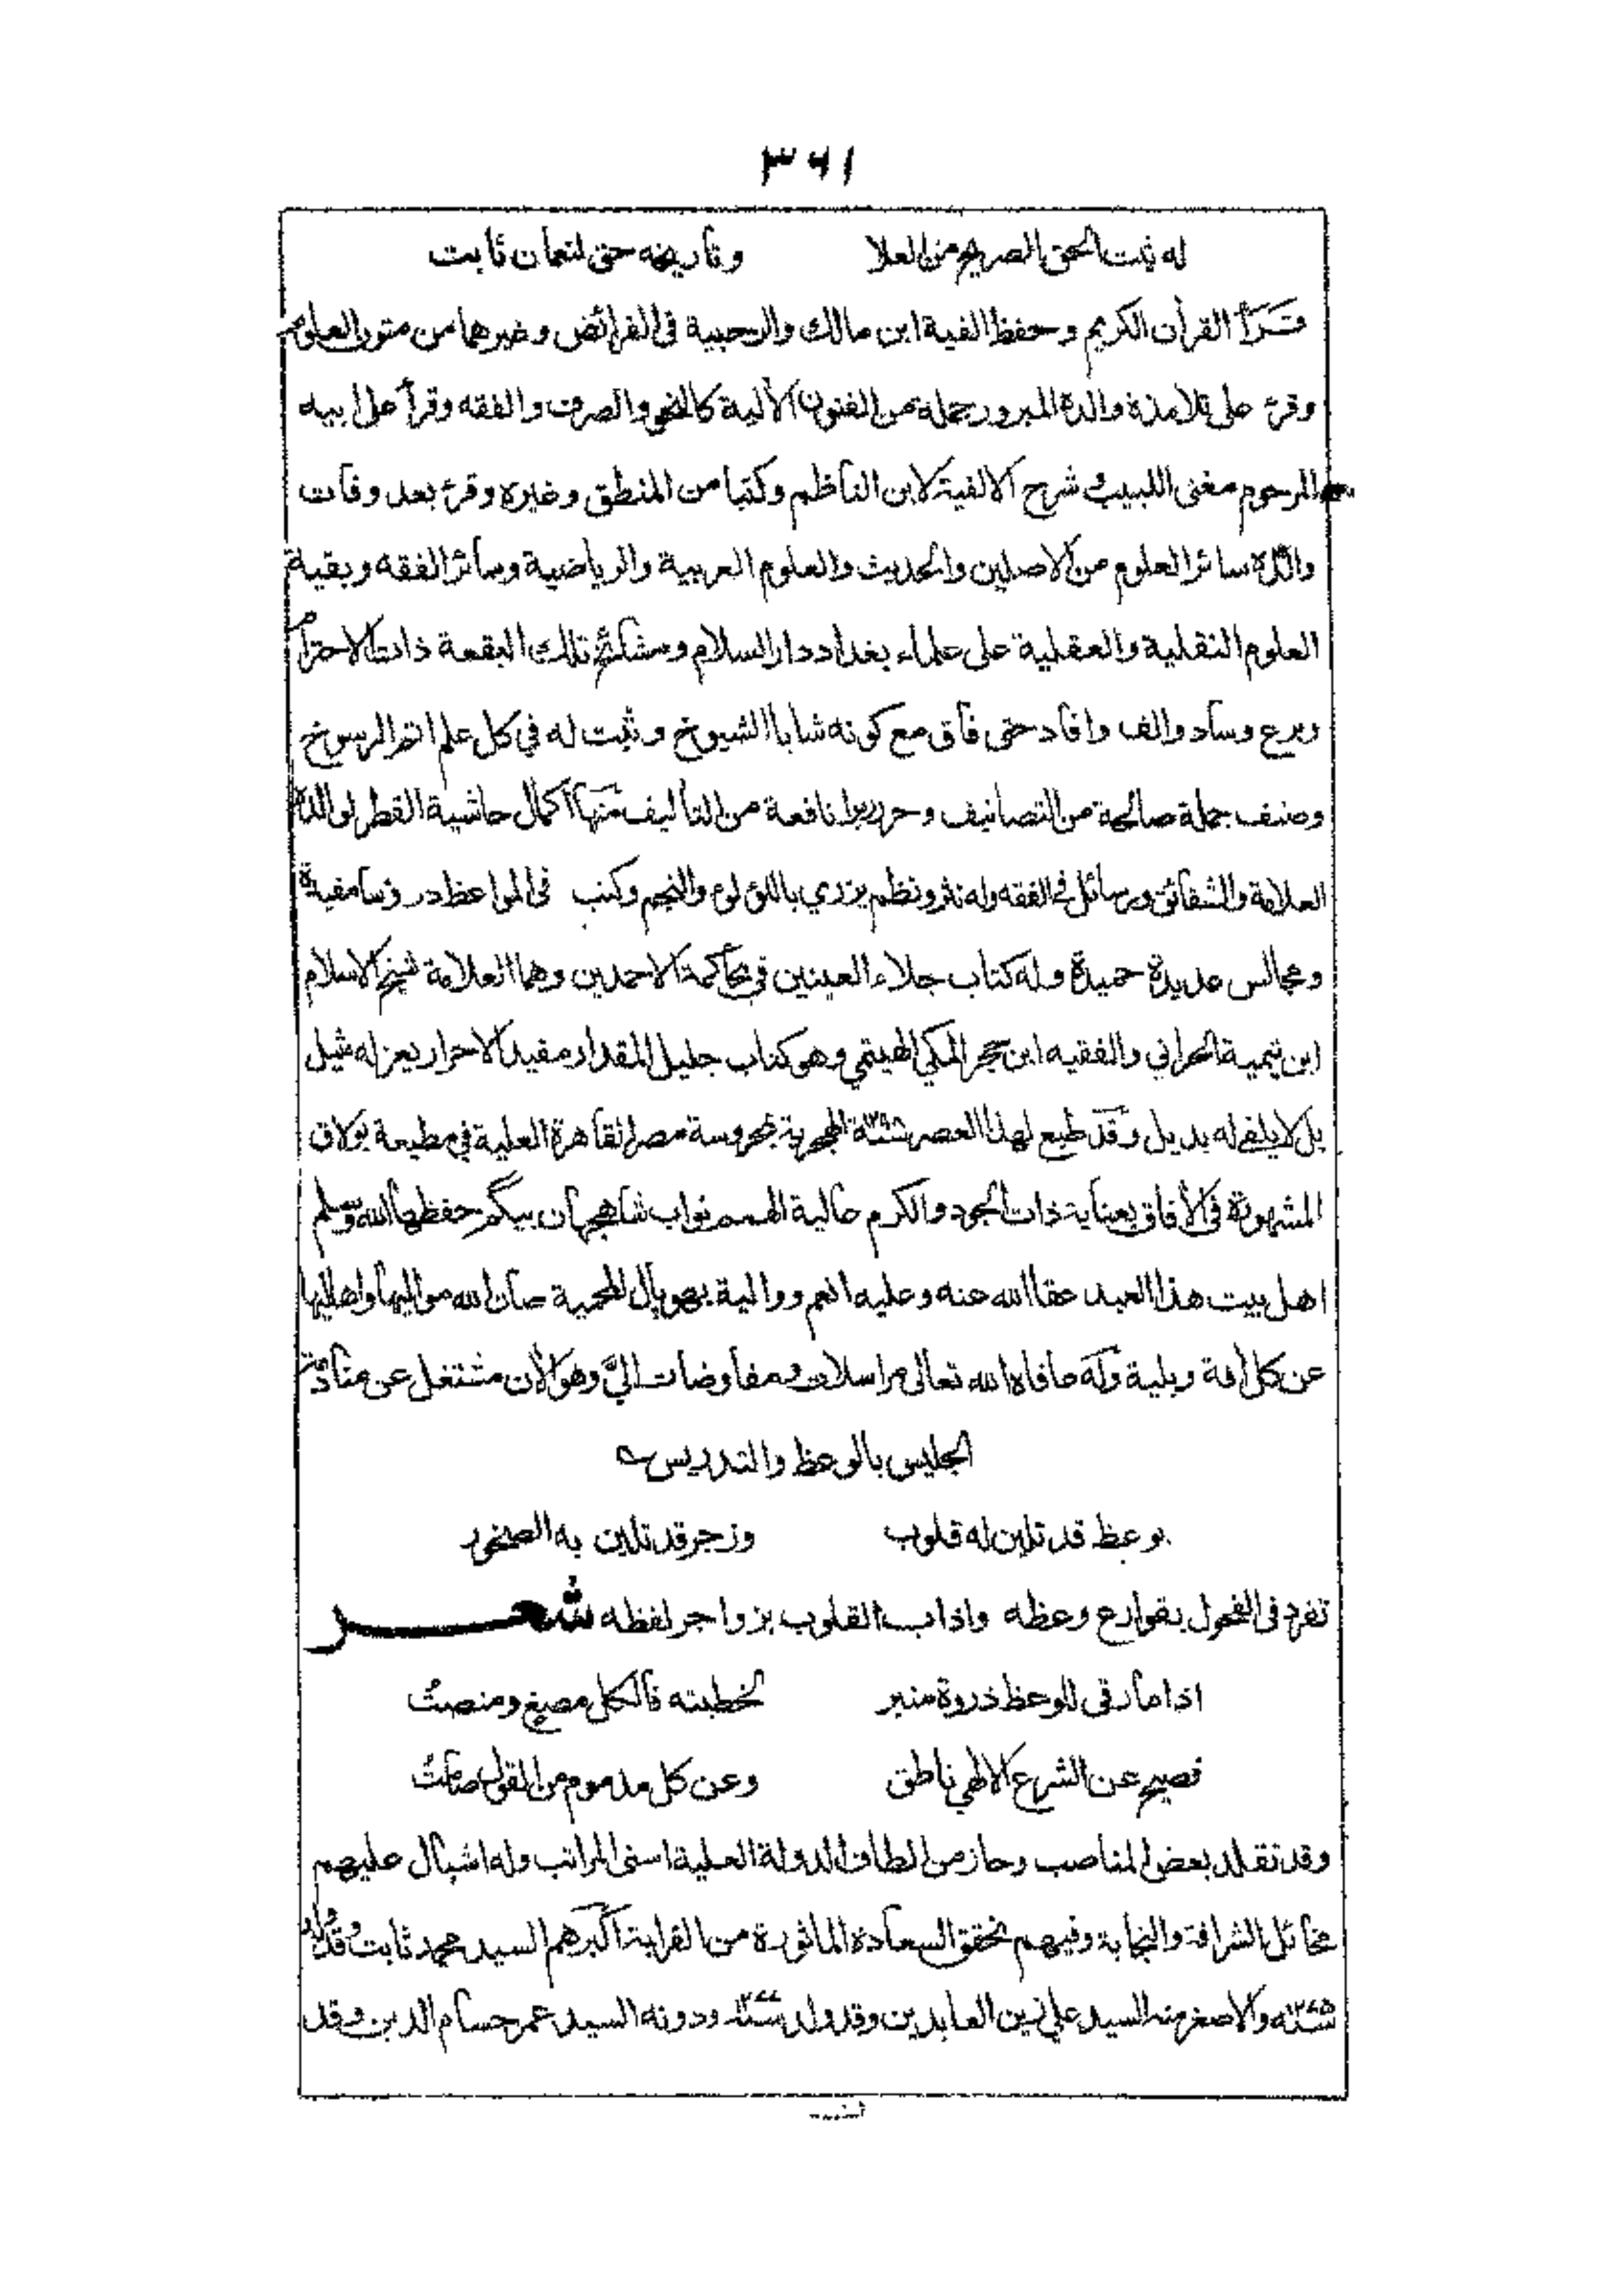 ٣٦١
له ثبت الحق الصريح من العلا وتأريخه حق لنعمان ثابت
قرأ القرأن الكريم وحفظ الفية ابن مالك والرحبية في الفرائض وغيرهما من متون العلوم
وقرء على تلامذة والده المبرور جملة من الفنون الألية كالنحو والصرف والفقه وقرأ على ابيه
المرحوم مغنى اللبيب وشرح الالفية لابن الناظم وكتبا من المنطق وغيره وقرء بعد وفات
والده سائر العلوم من الاصلين والحديث والعلوم العربية والرياضية وسائر الفقه وبقية
العلوم النقلية والعقلية على علماء بغداد دار السلام ومشائخ تلك البقعة ذات الاحترام
وبرع وساد والف وافاد حتى فاق مع كونه شابا الشيوخ وثبت له في كل علم اتم الرسوخ
وصنف جملة صالحة من التصانيف وحرر زبرا نافعة من التأليف منها اكمال حاشية القطر لوالده
العلامة والشقائق ورسائل في الفقه وله نثر ونظم يزري باللؤلوء والنجم وكتب في المواعظ دروسا مفيدة
ومجالس عديدة حميدة وله كتاب جلاء العينين في محاكمة الاحمدين وهما العلامة شيخ الاسلام
ابن تيمية الحراني والفقيه ابن حجر المكي الهيتمي وهو كتاب جليل المقدار مفيد الاحرار يعز له مثيل
بل لا يلفى له بديل وقد طبع لهذا العصر سنة ١٢٩٨ الهجرية بمحروسة مصر القاهرة العلية في مطبعة بولاق
المشهورة في الأفاق بعناية ذات الجود والكرم عالية الهمم نواب شاهجهان بيگم حفظها الله وسلم
اهل بيت هذا العبد عفا الله عنه وعليه انعم ووالية بهوپال المحمية صان الله مواليها واهاليها
عن كل أفة وبلية وله عافاه الله تعالى مراسلات ومفاوضات اليّ وهو الأن مشتغل عن منادمة
الجليس بالوعظ والتدريس
بوعظ قد تلين له قلوب وزجر قد تلين به الصخور
تفرد في الفحول بقوارع وعظه واذاب القلوب بزواجر لفظه شعر
اذا ما رقى للوعظ ذروة منبر لخطبته فالكل مصغ ومنصت
فصيح عن الشرع الالهي ناطق وعن كل مذموم من القول صامت
وقد تقلد بعض المناصب وحاز من الطاف الدولة العلية اسنى المراتب وله اشبال عليهم
مخائل الشرافة والنجابة وفيهم تحقق السعادة الماثورة من القرابة اكبرهم السيد محمد ثابت وقد ولد
سنة ١٢٧٥ والاصغر منه السيد علي زين العابدين وقد ولد سنة ١٢٧٧ ودونه السيد عمر حسام الدين وقد